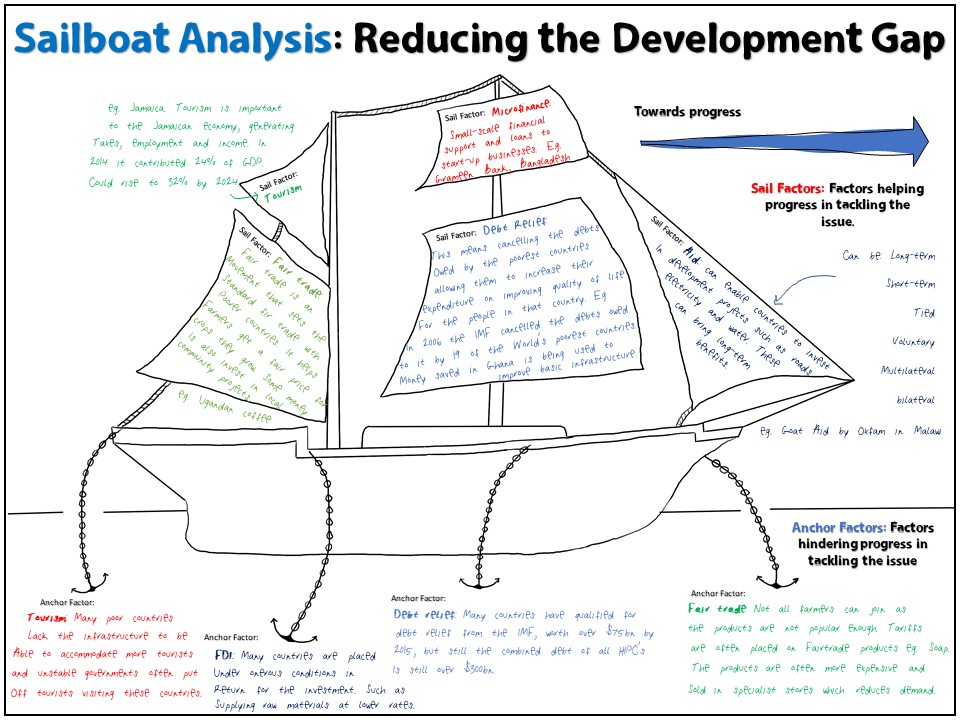 Sailboat Analysis: Reducing the Development Gap
eg. Jamaica Tourism is important
to the Jamaican economy, generating
Taxes, employment and income. In
2014 it contributed 24% of GDP.
Could rise to 32% by 2024
Sail Factor:
Tourism
Sail Factor: Microfinance:
Small-scale financial
support and loans to
start-up businesses. Eg.
Grameen Bank, Bangladesh
Towards progress
Sail Factors: Factors helping
progress in tackling the
issue.
Sail Factor: Fair trade
Fair trade is an
Movement that sets the
Standard for trade with
Poorer countries. It helps
Farmers get a fair price for
crops they grow. Some money
is also invest in local
community projects.
eg Ugandan coffee
Sail Factor: Debt Relief:
This means cancelling the debts
Owed by the poorest countries
allowing them to increase their
expenditure on improving quality of life
For the people in that country. Eg
in 2006 the IMF cancelled the debts owed
to it by 19 of the World's poorest countries.
Money saved in Ghana is being used to
improve basic infrastructure.
Sail Factor: Aid: can enable countries to invest
In development projects such as roads,
electricity and water. These
can bring long-term
benefits.
Can be Long-term
Short-term
Tied
Voluntary
Multilateral
bilateral
eg. Goat Aid by Oxfam in Malaw
Anchor Factors: Factors
hindering progress in
tackling the issue
Anchor Factor:
Tourism: Many poor countries
Lack the infrastructure to be
Able to accommodate more tourists
and unstable governments often put
Off tourists visiting these countries.
Anchor Factor:
FDI: Many countries are placed
Under onerous conditions in
Return for the investment. Such as
Supplying raw materials at lower rates.
Anchor Factor:
Debt relief: Many countries have qualified for
debt relief from the IMF, worth over $75bn by
2015, but still the combined debt of all HIPC's
is still over $300bn.
Anchor Factor:
Fair trade Not all farmers can join as
the products are not popular enough. Tariffs
are often placed on Fairtrade products eg. Soap.
The products are often more expensive and
Sold in specialist stores which reduces demand.